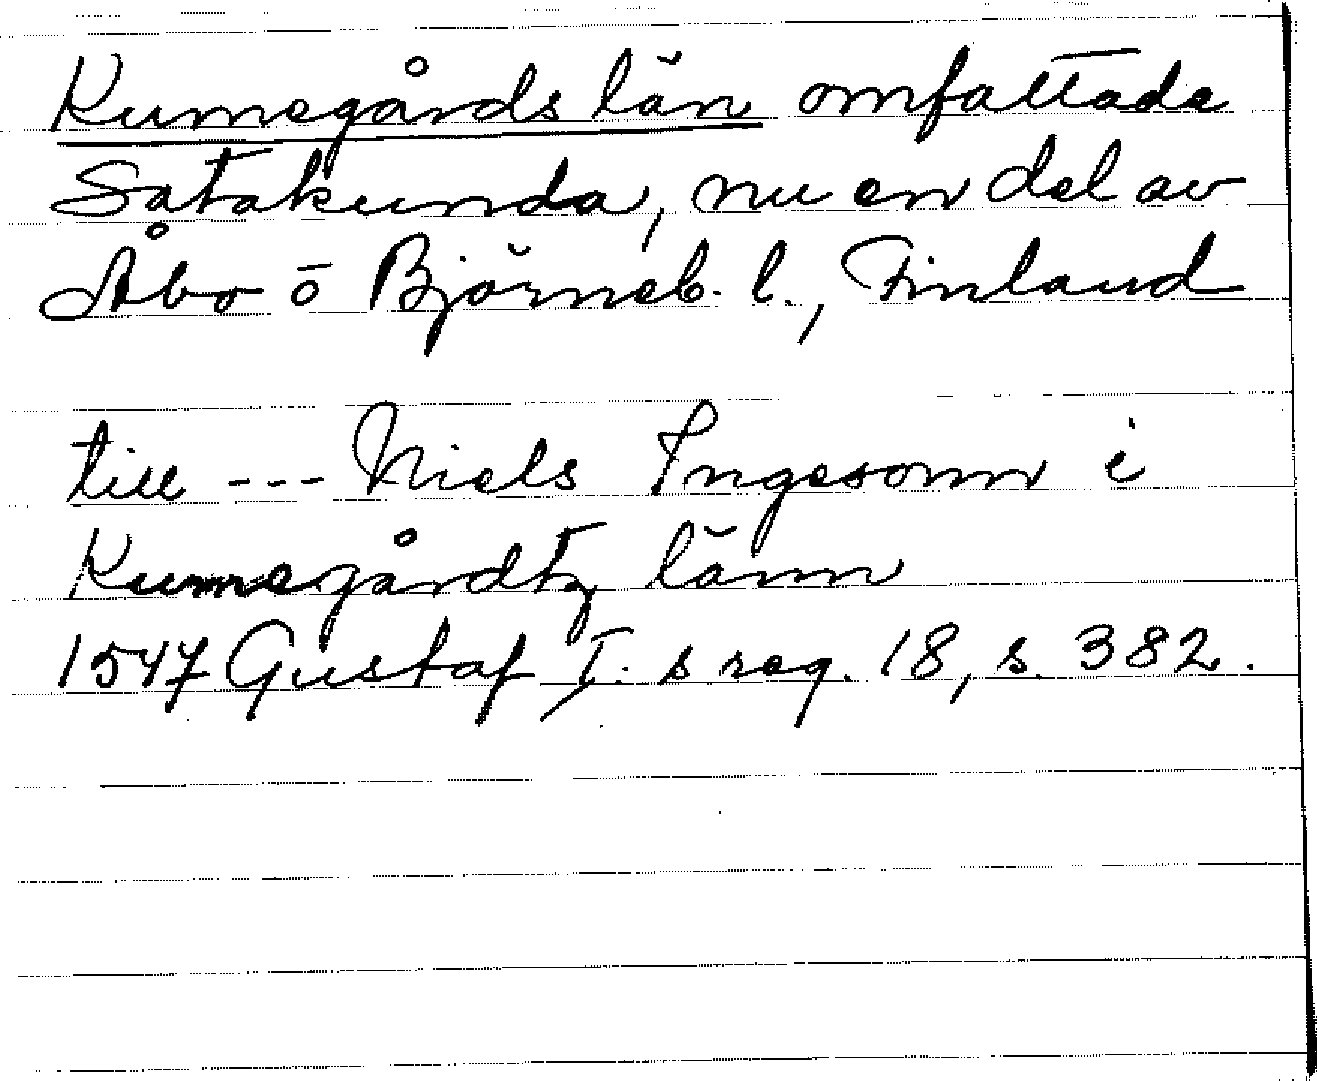 Kumogårds län omfattade
Satakunda, nu en del av
Åbo o Björneb. l., Finland
till --- Niels Ingesonn i
Kumogårdtz länn
1547 Gustaf I:s reg. 18, s. 382.